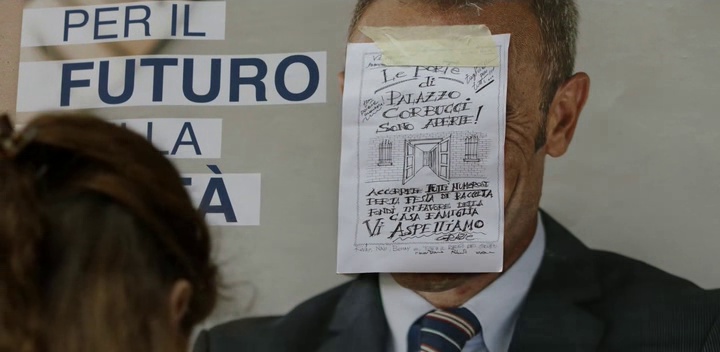 PER IL
FUTURO
LA
TÀ
Le PORTE
di
PALAZZO
CORBUCCI
SONO APERTE!
ACCORRETE TUTTI NUMEROSI
PER LA FESTA DI RACCOLTA
FONDI IN FAVORE DELLA
CASA FAMIGLIA
VI ASPETTIAMO